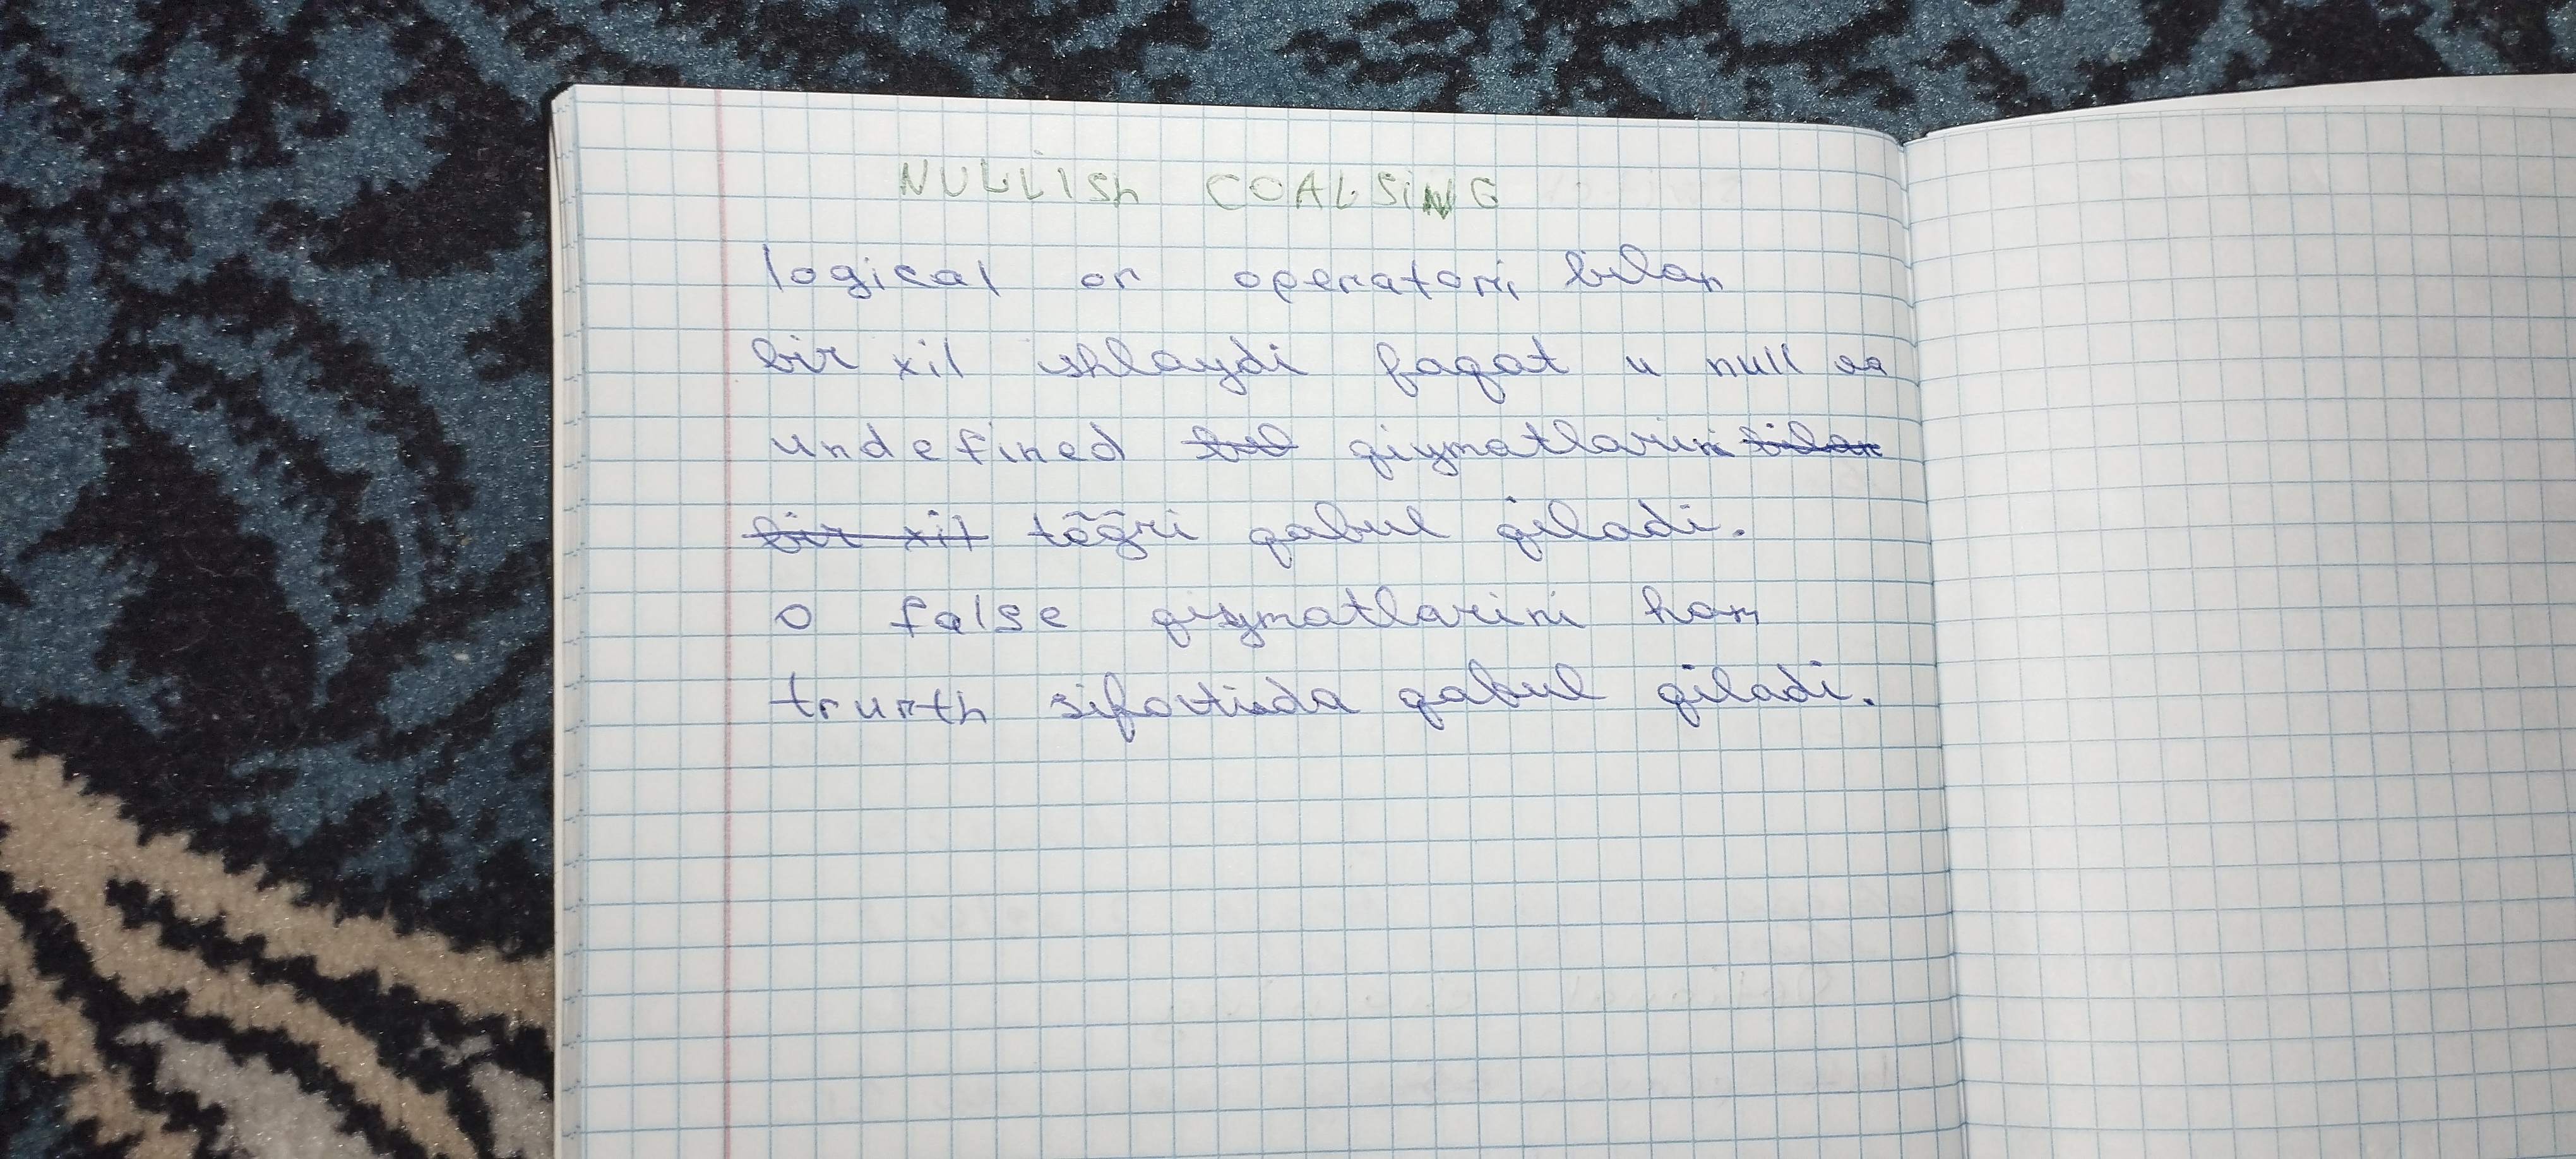 NULLISh COALSING
logical or operatori bilan
bir xil ishlaydi faqat u null va
undefined qiymatlarini
tõğri qabul qiladi.
0 false qiymatlarini ham
trurth sifatida qabul qiladi.